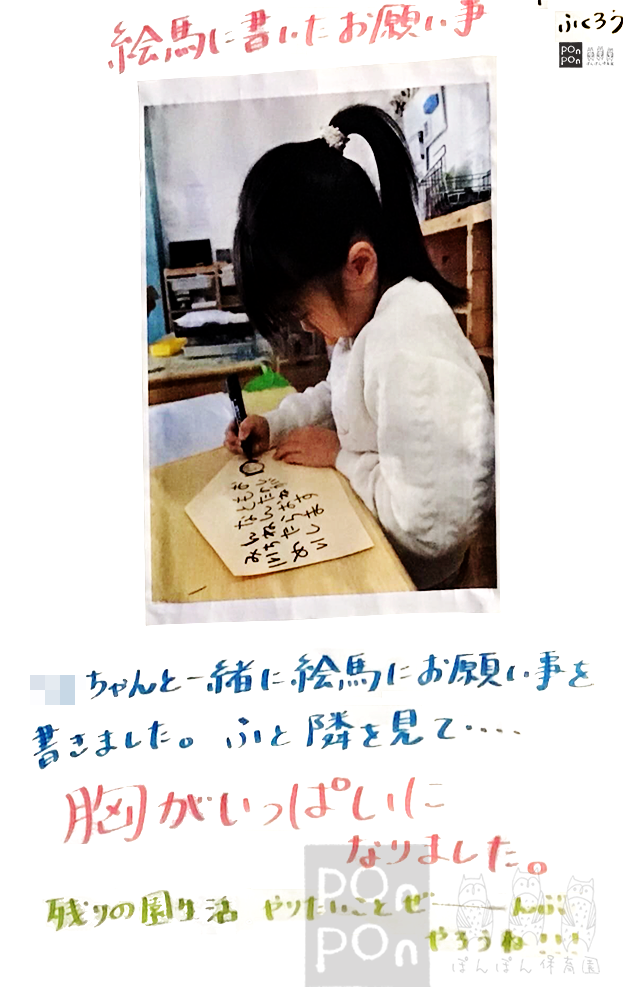 ふくろう
PON
PON
絵馬に書いたお願い事
ちゃんと一緒に絵馬にお願い事を
書きました。ふと隣を見て‥‥
胸がいっぱいに
なりました。
残りの園生活 やりたいことぜ――んぶ
やろうね!!!
PON
PON
ぽんぽん保育園